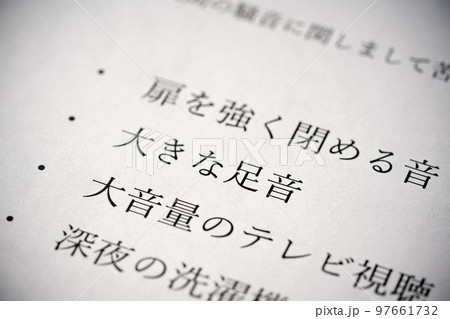 の騒音に関しまして苦
・扉を強く閉める音
・大きな足音
・大音量のテレビ視聴
・深夜の洗濯機
PIXTA
pixta.jp - 97661732